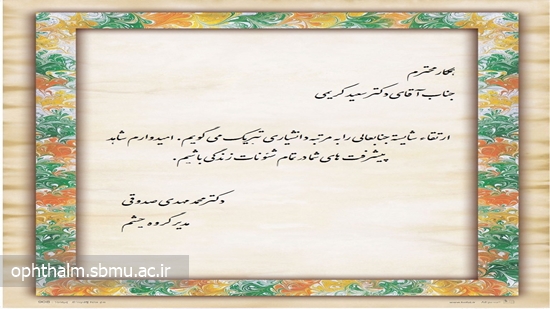 همکار محترم
جناب آقای دکتر سعید کریمی
ارتقاء شایسته جنابعالی را به مرتبه دانشیاری تبریک می گویم. امیدوارم شاهد
پیشرفت های شما در تمام شئونات زندگی باشیم.
دکتر محمد مهدی صدوقی
مدیر گروه چشم
ophthalm.sbmu.ac.ir